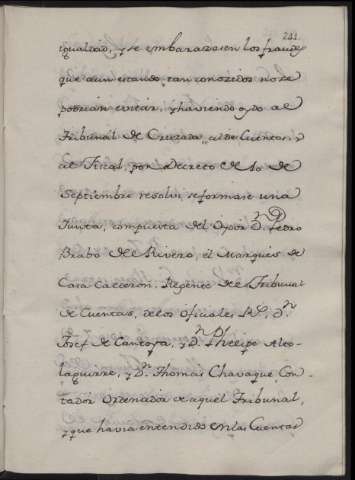 241
igualdad, y se embarazasen los fraudes
que aun estando tan conozidos no se
podrian evitar, y haviendo oydo al
Tribunal de Cruzada, al de Cuentas, y
al Fiscal, por Decreto de 10 de
Septiembre resolvi se formase una
Junta, compuesta del Oydor Dn Pedro
Brabo de Rivero, el Marques de
Casa Calderon, Regente del Tribunal
de Cuentas, de los Oficiales Rs. Dn
Josef de Cantoya, y Dn Phelipe Alto-
laguirre, y Dn Thomas Chavaque Con-
tador Ordenador de aquel Tribunal,
y que havia entendido en las Cuentas